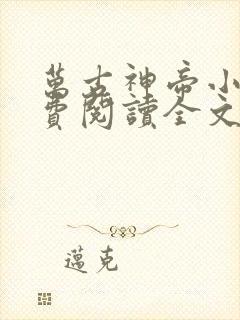 萬古神帝小
費閱讀全文
邁克